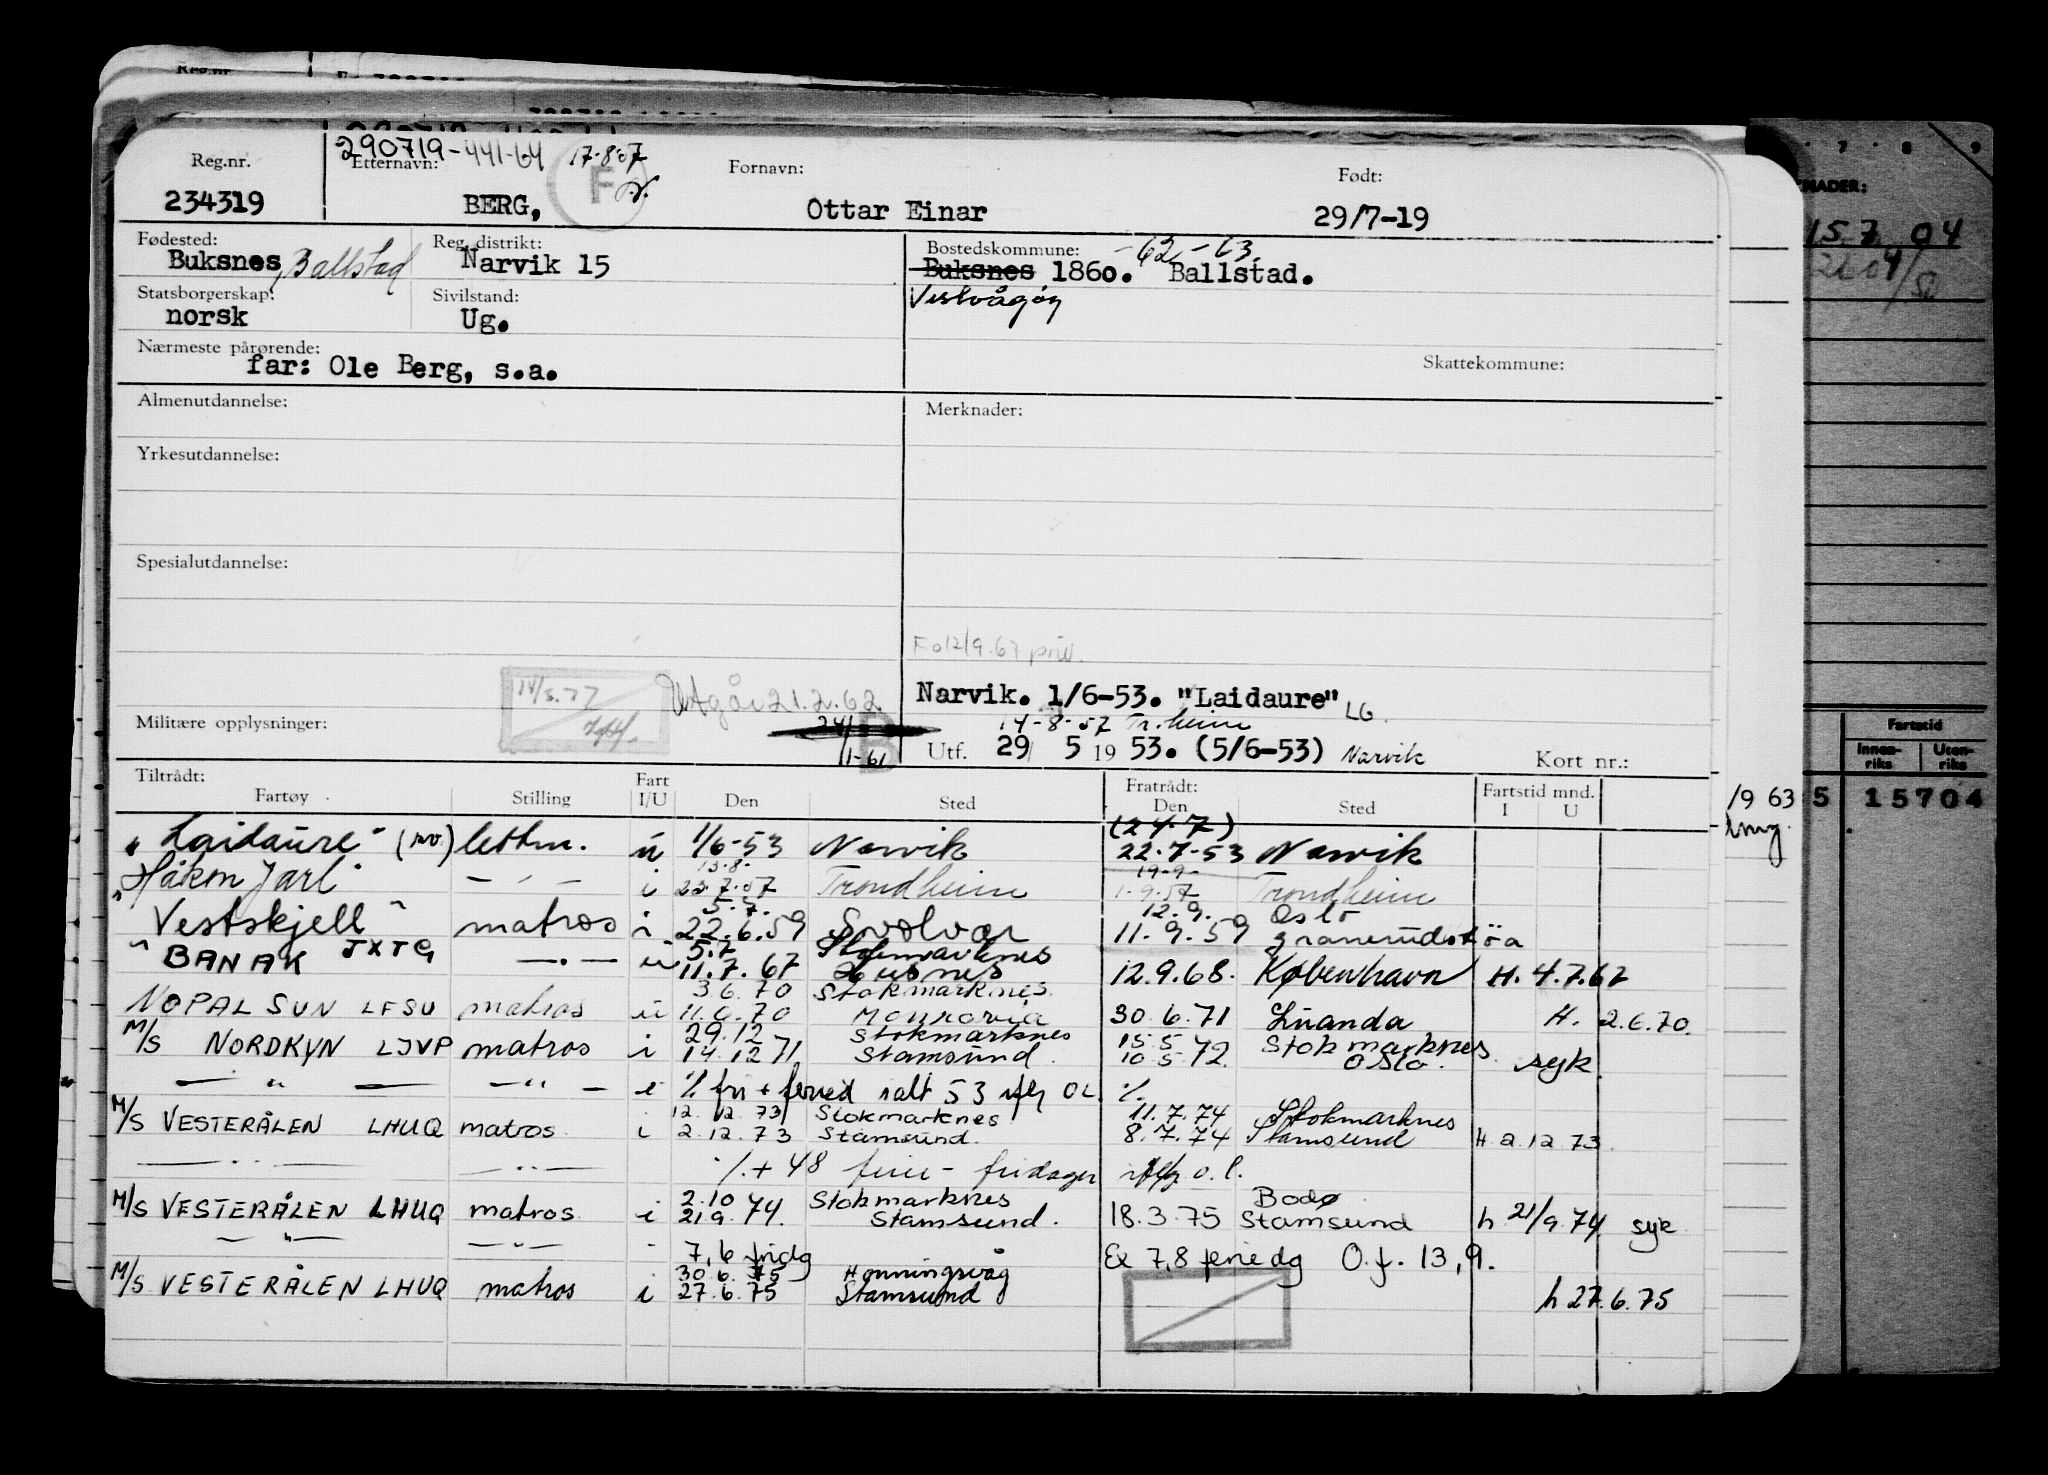 290719-441-64 17-8-57
Reg.nr. Etternavn: Fornavn: Født:
234319 BERG, F Ottar Einar 29/7-19
Fødested: Reg. distrikt: Bostedskommune: -62 -63
Buksnes, Ballstad Narvik 15 Buksnes 1860. Ballstad.
Vestvågøy
Statsborgerskap: Sivilstand:
norsk Ug.
Nærmeste pårørende: Skattekommune:
far: Ole Berg, s.a.
Almenutdannelse: Merknader:
Yrkesutdannelse:
Spesialutdannelse:
Utgår 21.2.62
Narvik. 1/6-53. "Laidaure" LG.
14-8-57 Tr.heim
Militære opplysninger: 1-61 B Utf. 29 5 1953. (5/6-53) Narvik Kort nr.:
Tiltrådt: Fart Fratrådt: Fartstid mnd.
Fartøy Stilling I/U Den Sted Den Sted I U
(24.7)
"Laidaure" lettm. u 1/6-53 Narvik 22.7-53 Narvik
13.8. 19-9-
"Håkon Jarl" — " — i 23.7.57 Trondheim 1.9.57 Trondheim
5.7. 12.9. Oslo
"Vestskjell" matros i 22.6.59 Svolvær 11.9.59
5.7 Stokmarknes
"BANAK JXTG — " — u 11.7.67 Husnes 12.9.68. København H. 4.7.67
3.6.70 Stokmarknes
NOPAL SUN LFSU matros u 11.6.70 Monrovia 30.6.71 Luanda H. 2.6.70.
29.12 Stokmarknes 15.5 Stokmarknes
M/S NORDKYN LJVP matros i 14.12 71 Stamsund. 10.5.72. Oslo. syk.
— " — — " — i ·/. fri + feried ialt 53 iflg OL ·/.
12.12.73 Stokmarknes 11.7.74 Stokmarknes
M/S VESTERÅLEN LHUQ matros i 2.12.73 Stamsund. 8.7.74 Stamsund H 2.12.73
— " — — " — ·/. + 48 ferie- fridager iflg o.l.
2.10 Stokmarknes Bodø
M/S VESTERÅLEN LHUQ matros i 21.9.74. Stamsund. 18.3.75 Stamsund h 21/9.74 syk
— " — — " — 7,6 fridg Ex 7,8 feriedg O.f. 13,9.
30.6.75 Honningsvåg
M/S VESTERÅLEN LHUQ matros i 27.6.75 Stamsund h 27.6.75
7 8 9
15.7.04
Fartstid
Innen-riks Uten-riks
/9 63 5 15704